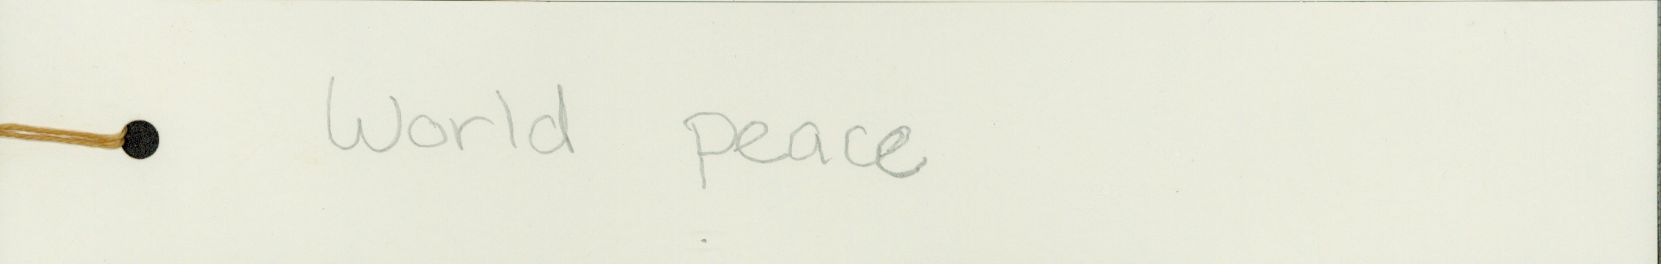 World peace